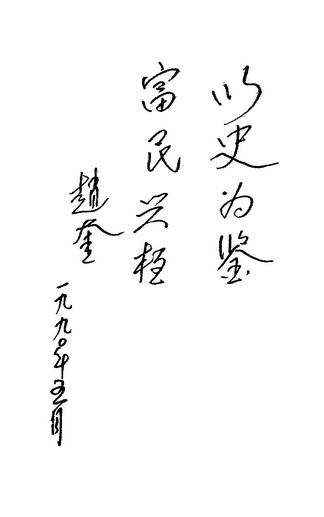 以史为鉴
富民兴桓
趙奎
一九九〇年五月